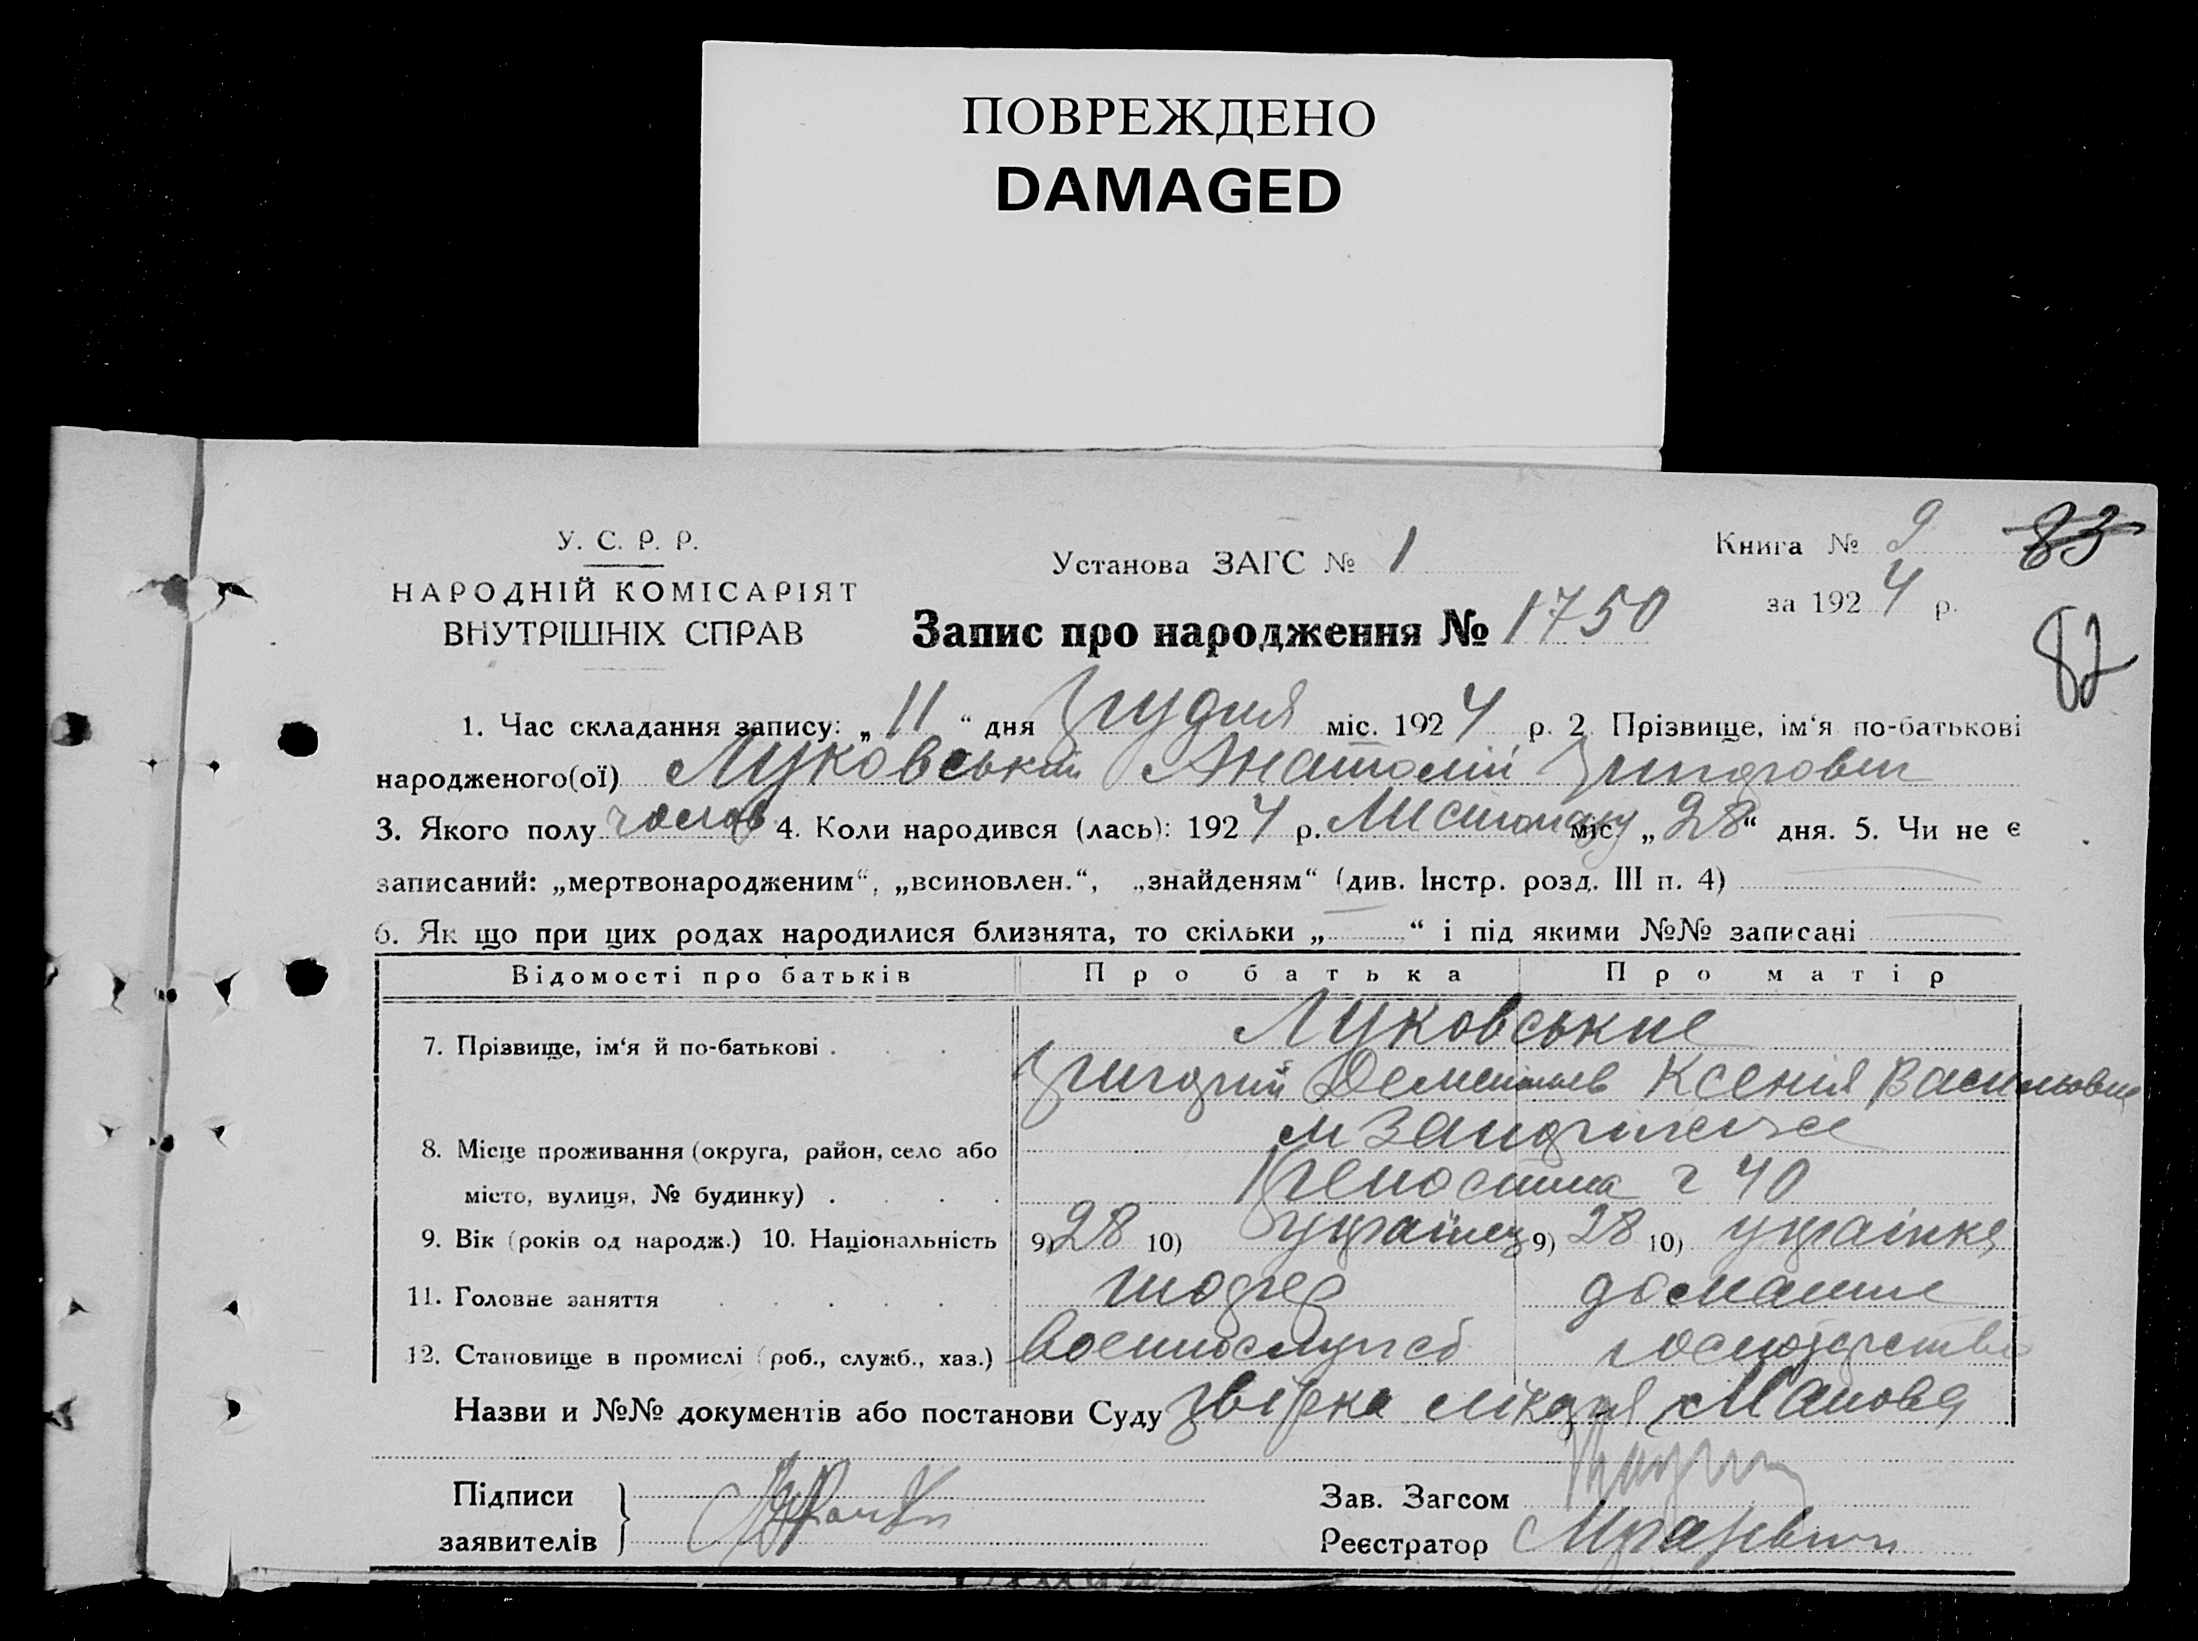 ПОВРЕЖДЕНО
DAMAGED
У. С. Р. Р.
НАРОДНІЙ КОМІСАРІЯТ
ВНУТРІШНІХ СПРАВ
Установа ЗАГС № 1
Книга № 9 83
за 1924 р.
82
Запис про народження № 1750
1. Час складання запису: „11“ дня грудня міс. 1924 р. 2. Прізвище, ім‘я по-батькові
народженого(ої) Луковський Анатолій Григорович
3. Якого полу чолов 4. Коли народився (лась): 1924 р. Листопаду міс. „28“ дня. 5. Чи не є
записаний: „мертвонародженим“, „всиновлен.“, „знайденям“ (див. Інстр. розд. III п. 4)
6. Як що при цих родах народилися близнята, то скільки „ “ і під якими №№ записані
Відомості про батьків Про батька Про матір
7. Прізвище, ім‘я й по-батькові . Луковські
Григорій Ксенія Васильовна
8. Місце проживання (округа, район, село або м Запоріжжє
місто, вулиця, № будинку) . 40
9. Вік (років од народж.) 10. Національність 9) 28 10) українец 9) 28 10) українка
11. Головне заняття домашнє
12. Становище в промислі (роб., служб., хаз.) военнослужб господарство
Назви и №№ документів або постанови Суду лікаря
Підписи
заявителів
Зав. Загсом
Реєстратор